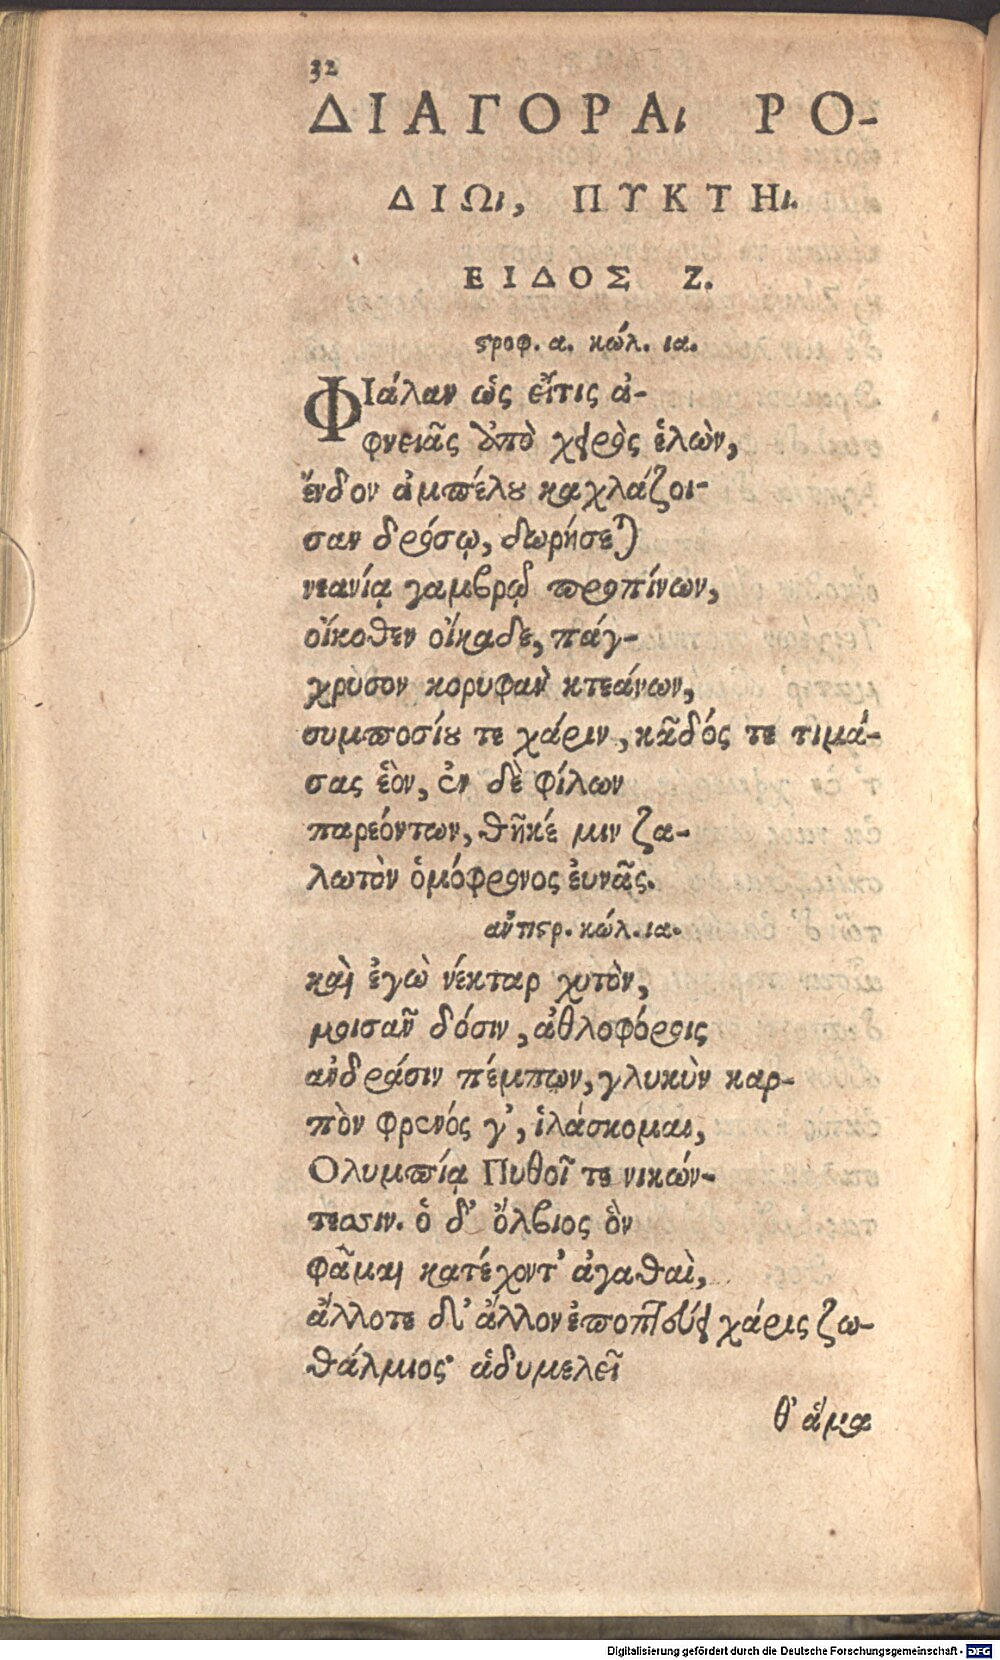 32
ΔΙΑΓΟΡΑι ΡΟ-
ΔΙΩι, ΠΥΚΤΗι.
ΕΙΔΟΣ Ζ.
ϛροφ. α. κώλ. ια.
ΦΙάλαν ὡς εἴτις ἀ-
φνειᾶς ἀπὸ χειρὸς ἑλὼν,
ἔνδον ἀμπέλου καχλάζοι-
σαν δρόσῳ, δωρήσεται
νεανίᾳ γαμβρῷ προπίνων,
οἴκοθεν οἴκαδε, πάγ-
χρυσον κορυφὰν κτεάνων,
συμποσίου τε χάριν, κᾶδός τε τιμά-
σας ἑὸν, ἐν δὲ φίλων
παρεόντων, θῆκέ μιν ζα-
λωτὸν ὁμόφρονος ἐυνᾶς.
ἀντιϛρ. κώλ. ια.
καὶ ἐγὼ νέκταρ χυτὸν,
μοισᾶν δόσιν, ἀθλοφόροις
ἀνδράσιν πέμπων, γλυκὺν καρ-
πὸν φρενός γ', ἱλάσκομαι,
Ολυμπίᾳ Πυθοῖ τε νικών-
τεσσιν. ὁ δ' ὄλβιος ὃν
φᾶμαι κατέχοντ' ἀγαθαὶ,
ἄλλοτε δ' ἄλλον ἐποπτεύει χάρις ζω-
θάλμιος· ἁδυμελεῖ
θ' ἅμα
Digitalisierung gefördert durch die Deutsche Forschungsgemeinschaft - DFG